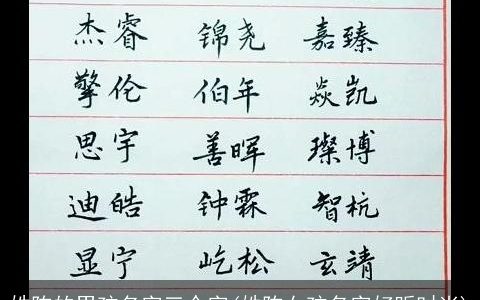 杰睿 锦尧 嘉臻
擎伦 伯年 焱凯
思宇 善晖 璨博
迪皓 钟霖 智杭
显宁 屹松 玄靖
姓陈的男孩名字三个字(姓陈女孩名字好听时尚)